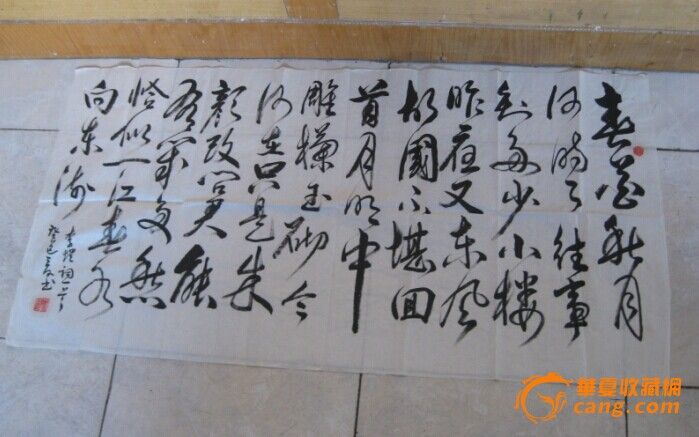 春花秋月
何时了往事
知多少小楼
昨夜又东风
故國不堪回
首月明中
雕栏玉砌今
何在只是朱
颜改问君能
有幾多愁
恰似一江春水
向东流
李煜词一首
癸巳书
華夏收藏網
cang.com